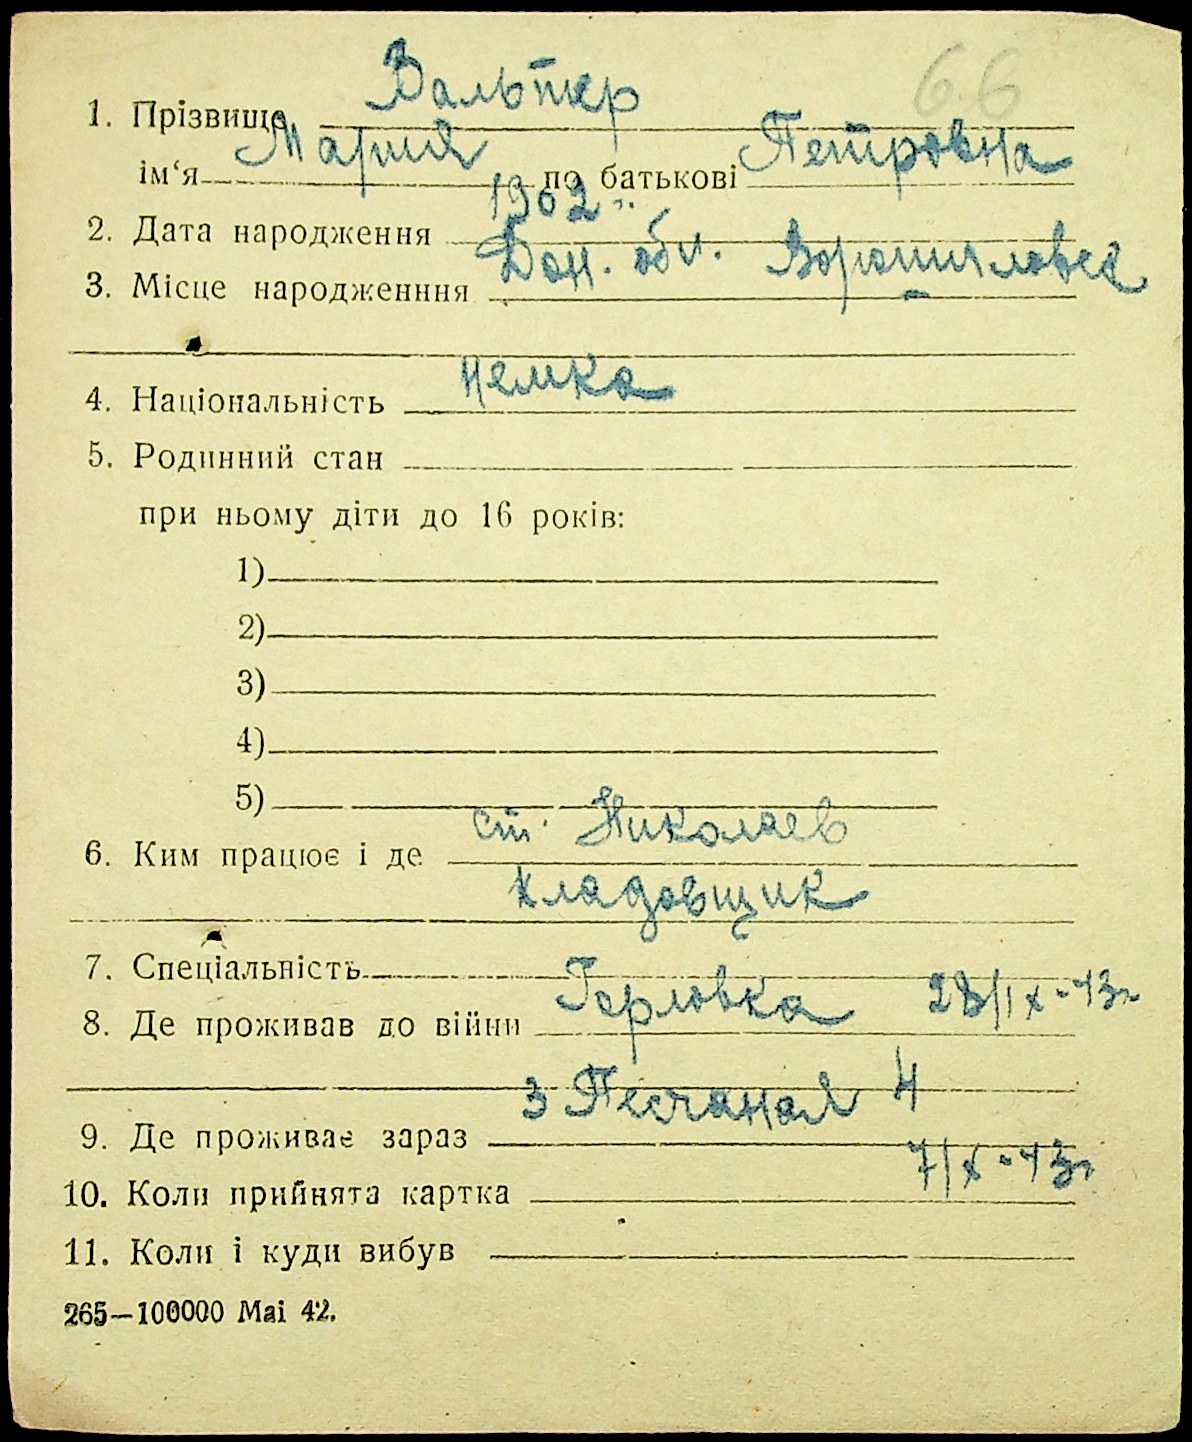 66
1. Прізвище Вальтер
ім‘я Мария по батькові Петровна
2. Дата народження 1902 г.
3. Місце народженння Дон. обл. Ворошиловск
4. Національність немка
5. Родинний стан
при ньому діти до 16 років:
1)
2)
3)
4)
5)
6. Ким працює і де ст. Николаев
кладовщик
7. Спеціальність
8. Де проживав до війни Горловка 28/IX-43г
9. Де проживає зараз 3 Песчаная 4
10. Коли прийнята картка 7/X-43г
11. Коли і куди вибув
265—100000 Mai 42.